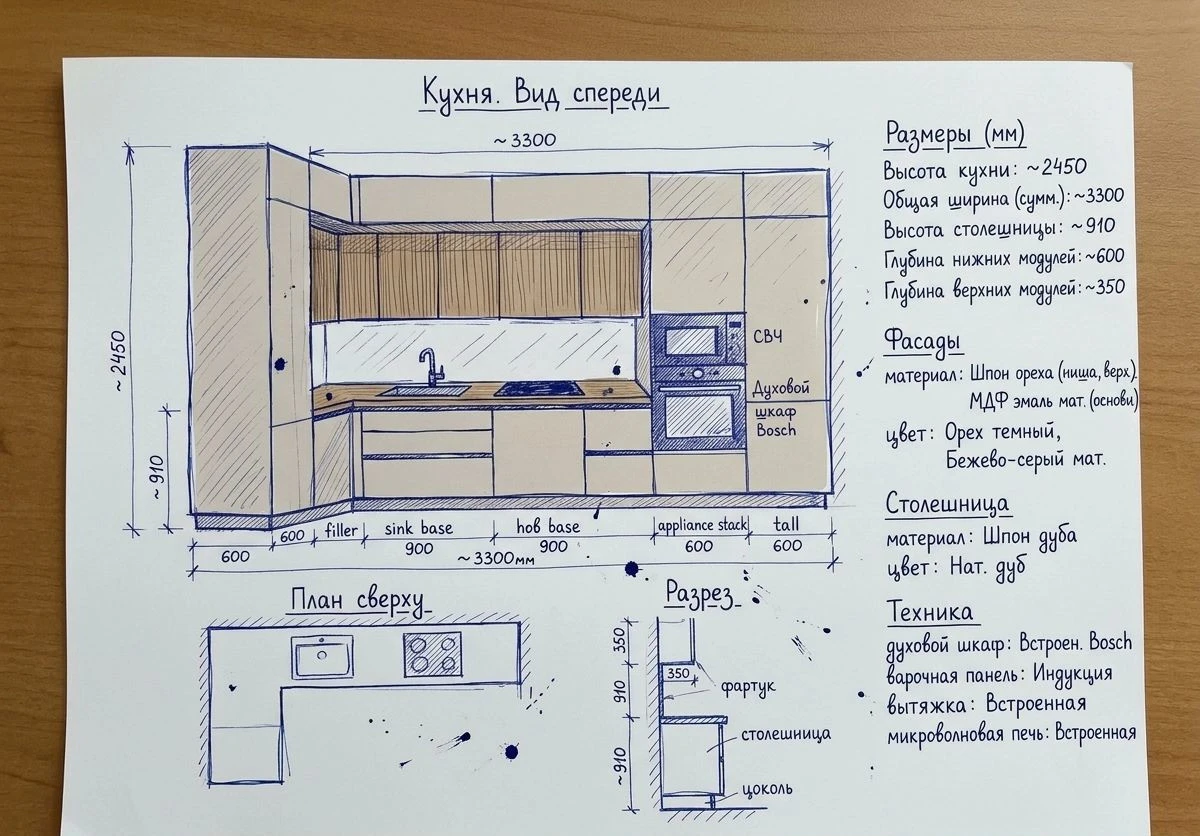 Кухня. Вид спереди
~3300
~2450
~910
СВЧ
Духовой
шкаф
Bosch
600
600
filler
sink base
900
hob base
900
appliance stack
600
tall
600
~3300мм
План сверху
Разрез
350
350
910
~910
фартук
столешница
цоколь
Размеры (мм)
Высота кухни: ~2450
Общая ширина (сумм.): ~3300
Высота столешницы: ~910
Глубина нижних модулей: ~600
Глубина верхних модулей: ~350
Фасады
материал: Шпон ореха (ниша, верх).
МДФ эмаль мат. (основи)
цвет: Орех темный,
Бежево-серый мат.
Столешница
материал: Шпон дуба
цвет: Нат. дуб
Техника
духовой шкаф: Встроен. Bosch
варочная панель: Индукция
вытяжка: Встроенная
микроволновая печь: Встроенная